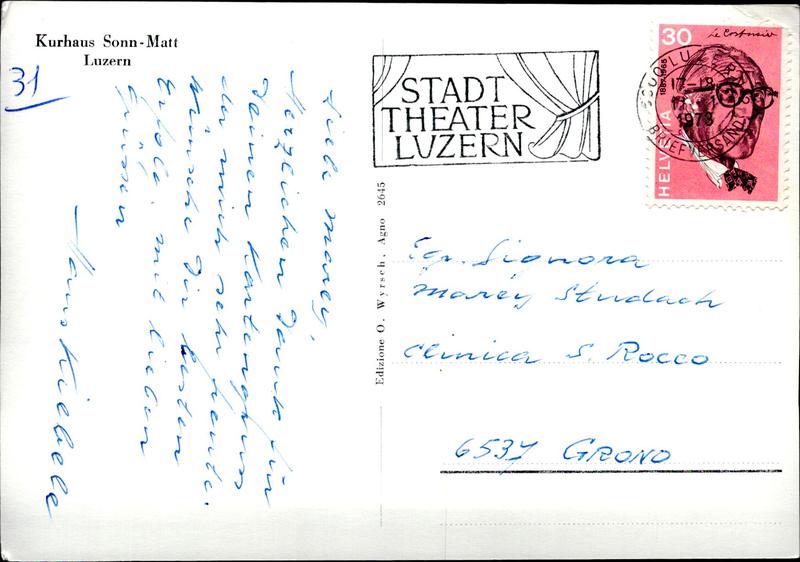 Kurhaus Sonn-Matt
Luzern
31
Liebe Marcy,
Herzlichen Dank für
Deinen Kartengruss
der mich sehr freute.
Wünsche Dir besten
Erfolg, mit lieben
Grüssen
Edizione O. Wyrsch, Agno 2645
STADT
THEATER
LUZERN
30
Le Corbusier
1887-1965
HELVETIA
LUZERN
17-18
1973
BRIEFVERSAND
Egr. Signora
Marcy Studach
Clinica S. Rocco
6537 GRONO